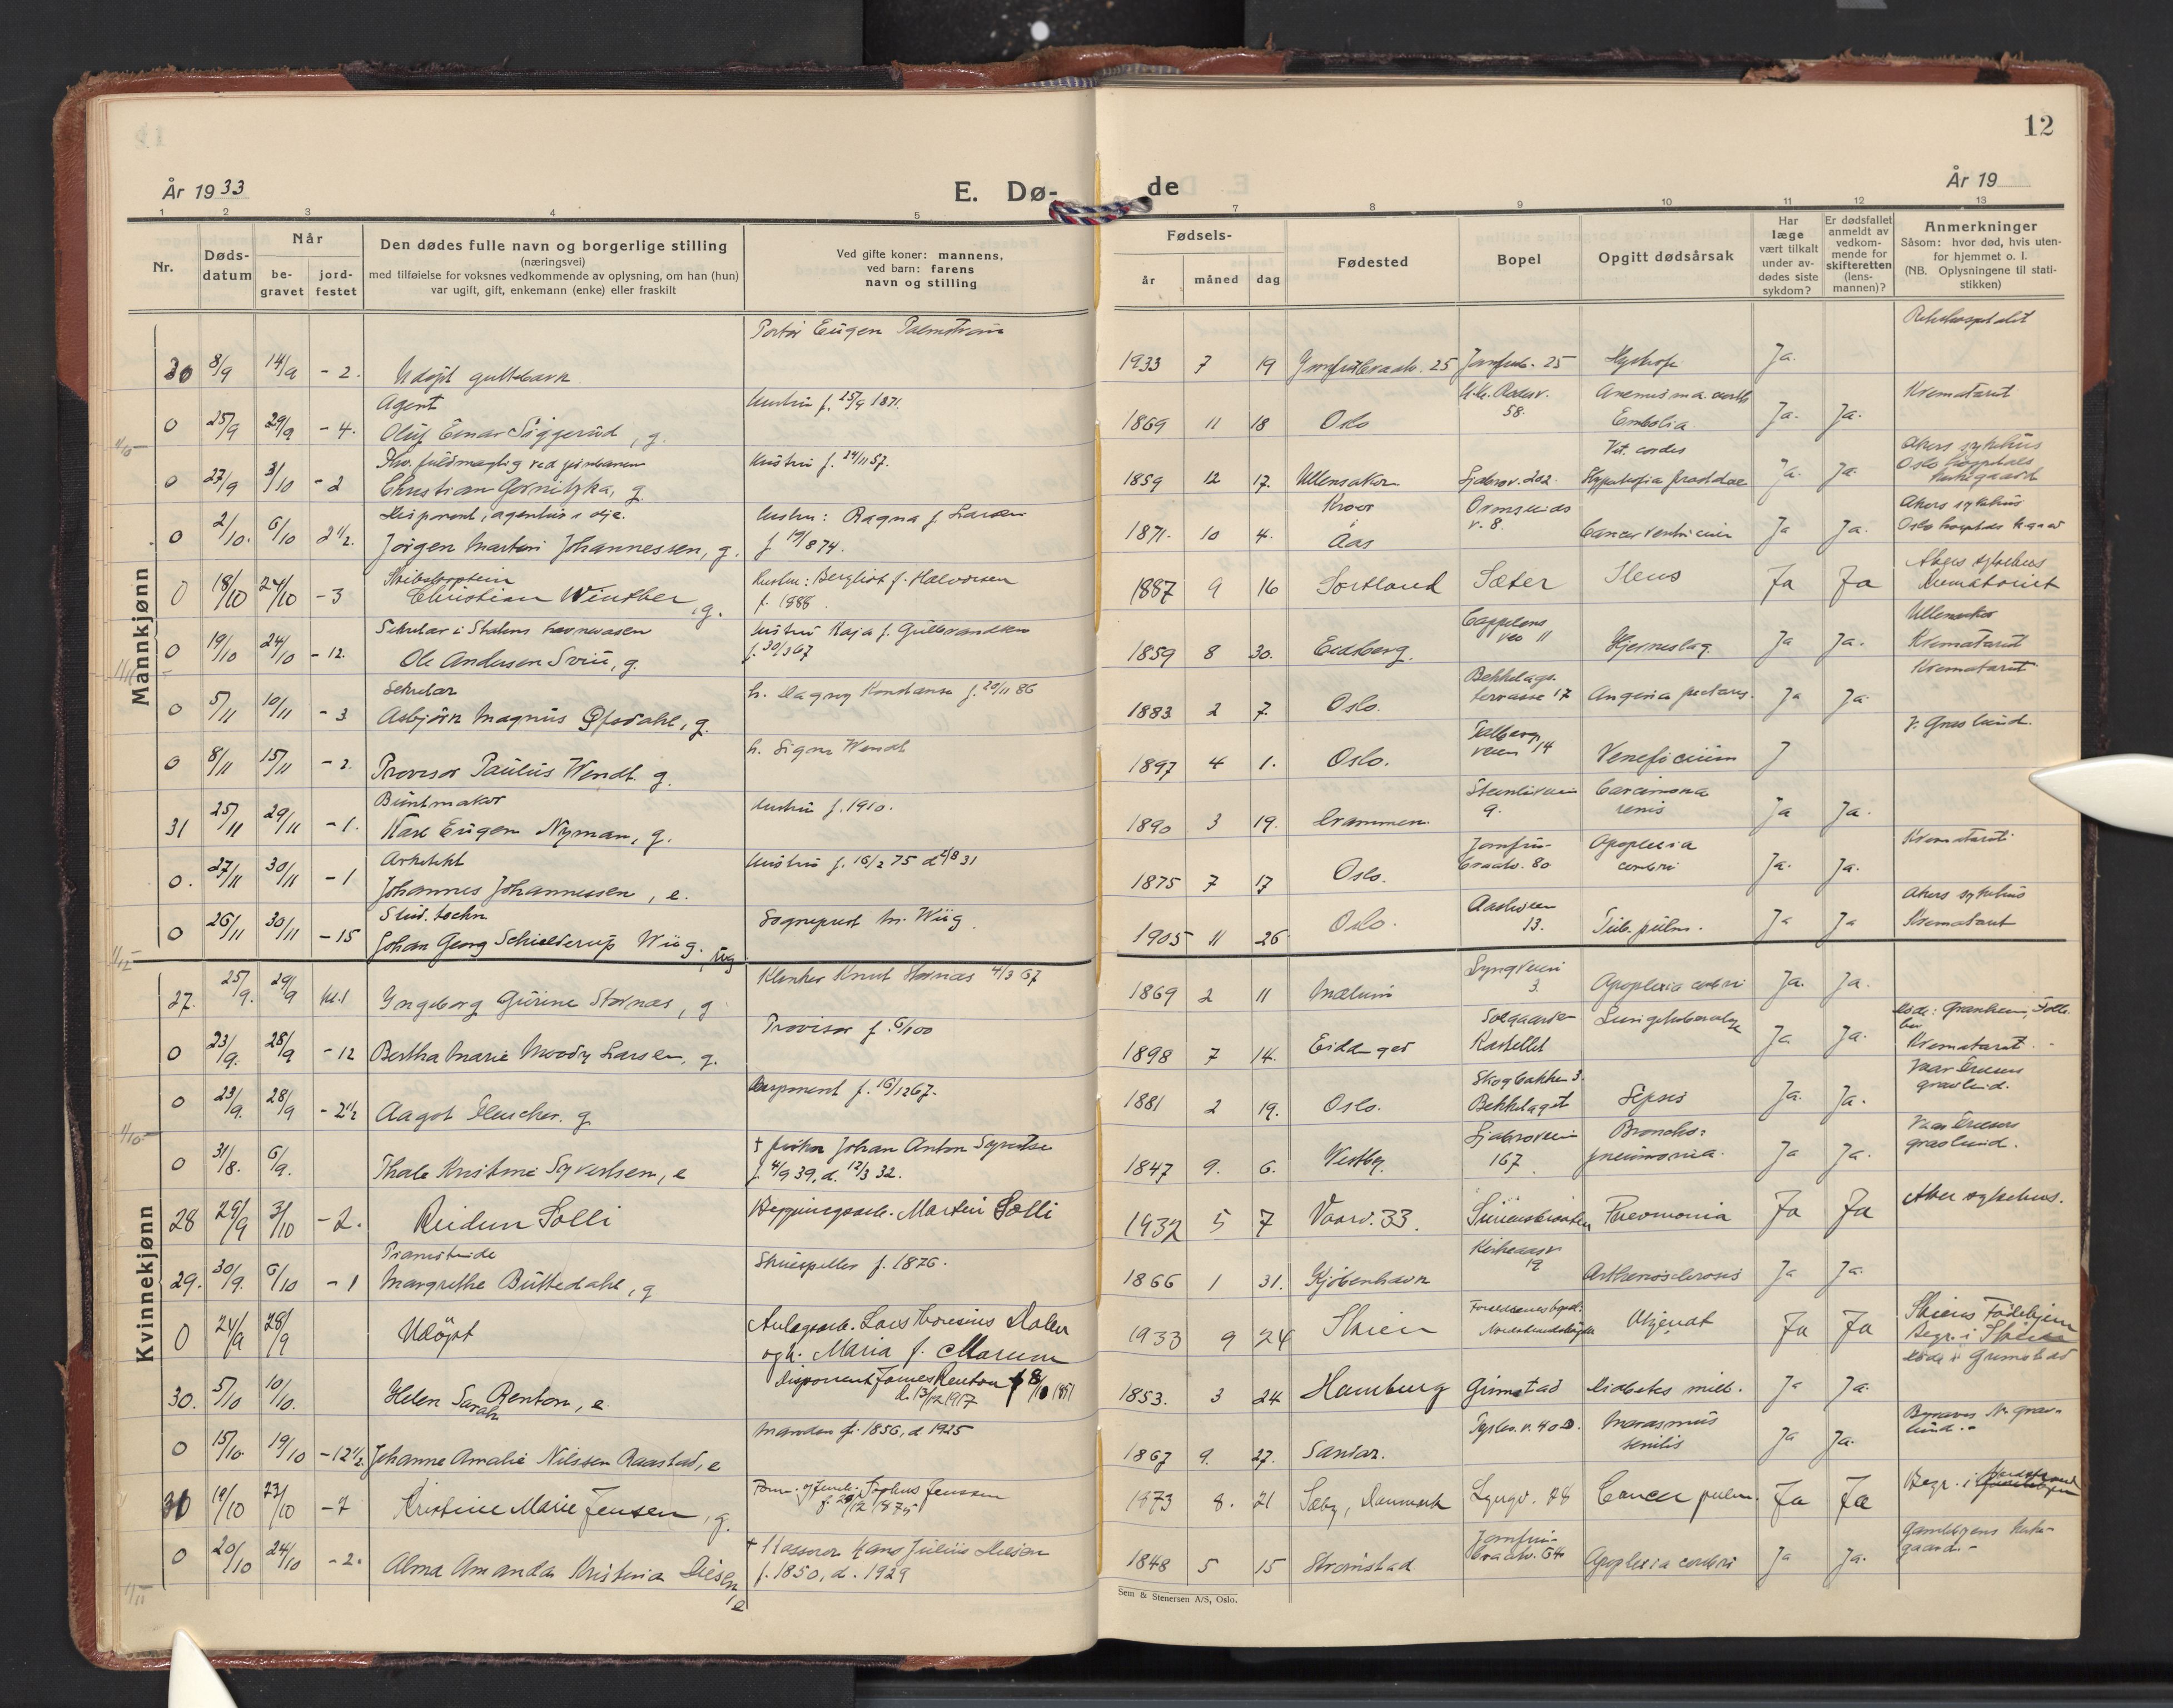 12
År 1933
E. Dø-
de
År 19
1 2 3 4 5 7 8 9 10 11 12 13
Nr.
Døds-
datum
Når
be-
gravet
jord-
festet
Den dødes fulle navn og borgerlige stilling
(næringsvei)
med tilføielse for voksnes vedkommende av oplysning, om han (hun)
var ugift, gift, enkemann (enke) eller fraskilt
Ved gifte koner: mannens,
ved barn: farens
navn og stilling
Fødsels-
år måned dag
Fødested
Bopel
Opgitt dødsårsak
Har
læge
vært tilkalt
under av-
dødes siste
sykdom?
Er dødsfallet
anmeldt av
vedkom-
mende for
skifteretten
(lens-
mannen)?
Anmerkninger
Såsom: hvor død, hvis uten-
for hjemmet o. l.
(NB. Oplysningene til stati-
stikken)
Mannkjønn
Eugen Palmstrøm
30 8/9 14/9 - 2. Udøpt guttebarn 1933 7 19 25 25 Ja.
Agent
0 25/9 29/9 - 4. Oluf Einar Siggerud, g. Hustru f. 25/9 1871. 1869 11 18 Oslo 58. Embolia Ja. Ja. Krematoriet
0 27/9 3/10 - 2 Christian Gornitzka, g. Hustru f. 24/11 57. 1859 12 17. Ullensaker Ljabrov. 202. Ja. Ja. Akers sykehus
0 2/10. 6/10 2 1/2. Jørgen Martin Johannessen, g. Hustru: Ragna f. Larsen 1871. 10 4. Kroer Ås Ormsunds v. 8. Cancer ventriculi Ja Ja. Akers sykehus
f 19/8 74.
Skibskaptein
0 18/10 24/10 - 3 Christian Winther, g. Hustru: Bergliot f. Halvorsen f. 1888. 1887 9 16 Sortland Sæter Ileus Ja Ja Akers sykehus Krematoriet
Sekretær i Statens havnevæsen
0 19/10 24/10 - 12. Ole Andersen Sviu, g. Hustru Kaja f. Gulbrandsen f. 30/3 67 1859 8 30. Eidsberg. Cappelens vei 11 Hjerneslag. Ja Ja. Krematoriet
Sekretær
0 5/11 10/11 - 3 Asbjørn Magnus Ofsdahl, g. h. Dagny Konstanse f. 20/11 86 1883 2 7. Oslo. Bekkelags- terrasse 17 Angina pectoris. Ja Ja. Krematoriet
0 8/11 15/11 - 2. Provisor Paulus Wendt. g. h. Signe Wendt 1897 4 1. Oslo. veien 14 Veneficium J
Buntmaker
31 25/11 29/11 - 1. Karl Eugen Nyman, g. Hustru f. 1910. 1890 3 19. Drammen. 9. Carcinoma renis Ja Ja.
Arkitekt
0. 27/11 30/11 - 1 Johannes Johannessen, e. Hustru f. 16/2 75 d 2/8 31 1875 7 17 Oslo. Jomfru- braatv. 80 Apoplexia cerebri Ja. Ja. Krematoriet
Stud. techn.
0 26/11 30/11 - 15 Johan Georg Schielderup Wiig, ug Sogneprest M. Wiig 1905 11 26 Oslo. 13. Tub. pulm. Ja Ja Akers sykehus Krematoriet
Kvinnekjønn
27. 25/9. 29/9 kl. 1 Ingeborg Gurine Stornæs, g Klokker Knut Stornæs 4/3 67 1869 2 11 Lyngveien 3. Apoplexia cerebri Ja. Ja.
0 23/9. 28/9 - 12 Bertha Marie Moody Larsen, g. Provisor f. 6/1 00 1898 7 14. Eidanger Solgaarden Kastellet Ja Ja. Krematoriet
0 23/9. 28/9 - 2 1/2 Aagot Fleischer. g Disponent f. 16/12 67. 1881 2 19. Oslo. Skogbakken 3. Bekkelaget Sepsis Ja. Ja. Vaar Frelsers gravlund.
0 31/8. 6/9. Thale Kristine Syvertsen, e Johan Anton Syvertsen f. 4/9 39, d. 12/3 32. 1847 9. 6. Vestby Ljabroveien 167 Broncho- pneumonia. Ja Ja. Vaar Frelsers gravlund.
28 29/9 3/10 - 2. Reidun Solli Martin Solli 1932 5 7 Pneumonia Ja Ja Aker sykehus.
Pianistinde
29. 30/9. 6/10 - 1 Margrethe Buttedahl, g Skuespiller f. 1876. 1866 1 31. Kjøbenhavn Kirkeaasv. 19 Artheriosclerosis Ja Ja.
0 24/9 28/9 Udøpt Anlegsarb. Lars Thoresius Dalen og h. Maria f. 1933 9 24 Skien Ja Ja Skiens Fødehjem Begr. i Skien
30. 5/10 10/10. Helen Sarah Renton, e Disponent James Renton f 8/10 1851 d. 13/12 1917 1853. 3 24 Hamburg Grimstad Diabetes mell. Ja Ja. Døde i Grimstad
0 15/10 19/10 - 12 1/2. Johanne Amalie Nilssen Raastad, e Manden f. 1856, d 1925 1867 9. 27. Sandar. Marasmus senilis Ja Ja.
31 19/10 23/10 - 2 Kristine Marie Jensen, g. Sophus Jenssen 1873 8. 21 Sæby, Danmark Lyngv. Cancer pulm. Ja Ja
0 20/10 24/10 - 2. Alma Amanda Kristina Diesen, e † Kasserer Hans Julius Diesen f. 1850, d. 1929 1848 5 15 Strømstad Jomfru- braatv. 64 Apoplexia cerebri Ja Ja. Gamlebyens kirke- gaard.-
Sem & Stenersen A/S, Oslo.